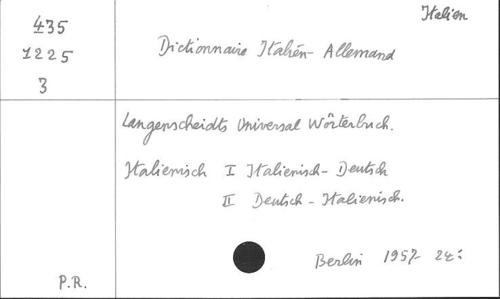 Italien
435
1225
3
Dictionnaire Italién-Allemand
Langenscheidts Universal Wörterbuch.
Italienisch I Italienisch-Deutsch
II Deutsch-Italienisch.
Berlin 1957
P.R.